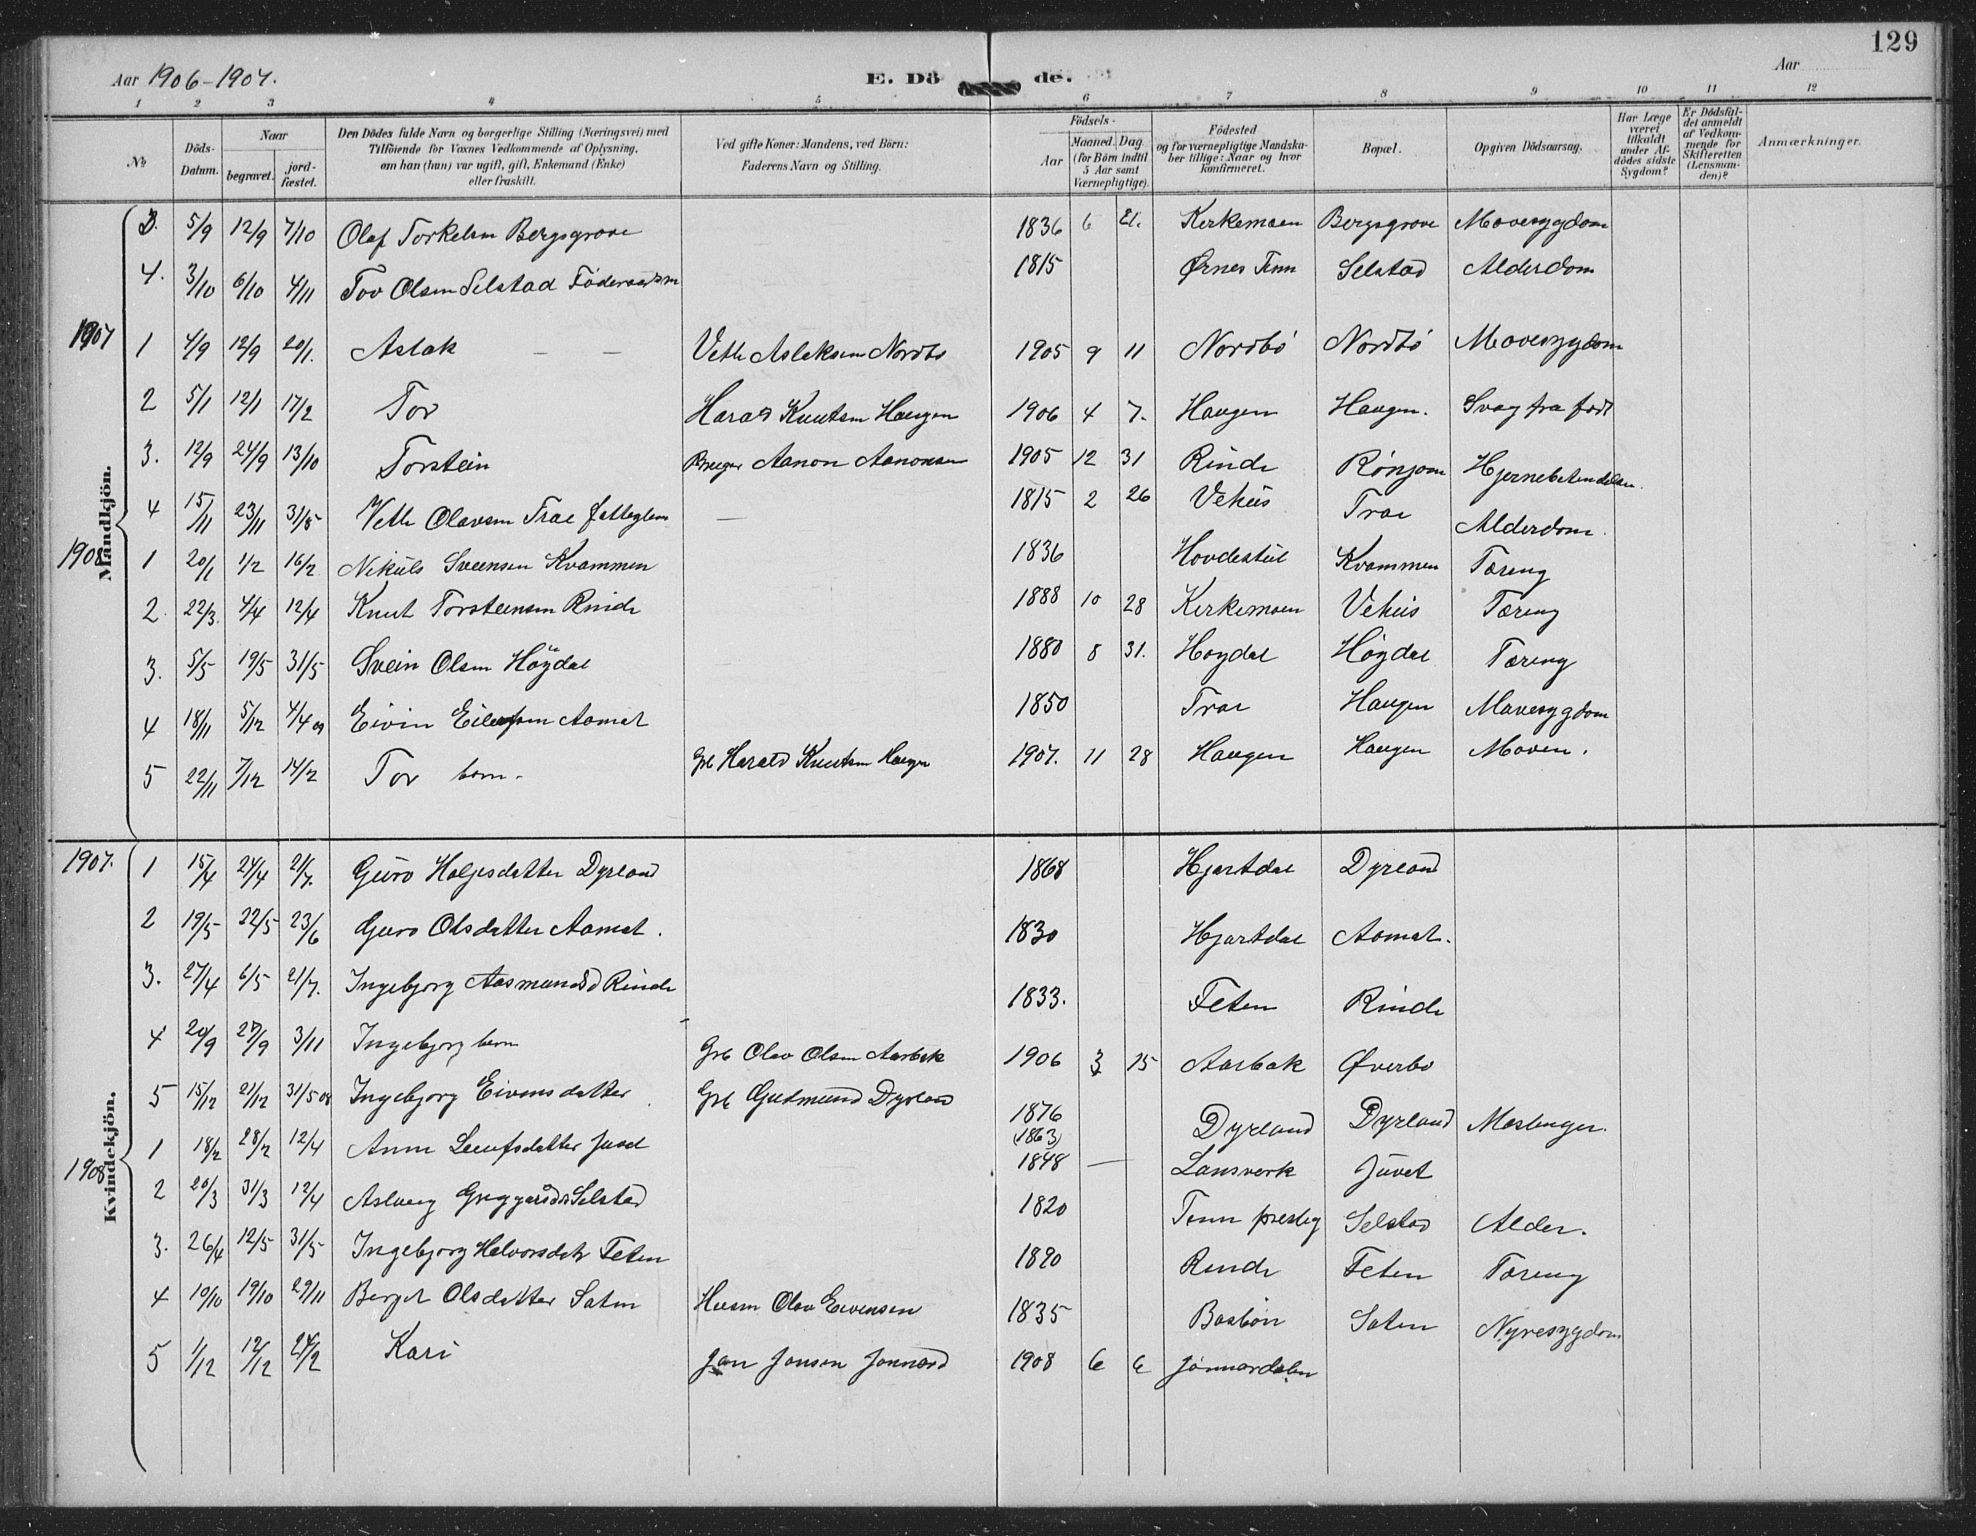 129
Aar 1906-1907. E. Döde. Aar
1 2 3 4 5 6 7 8 9 10 11 12
No
Döds-Datum.
Naar
begravet.
jordfæstet.
Den Dödes fulde Navn og borgerlige Stilling (Næringsvei) med
Tilföiende for Voxnes Vedkommende af Oplysning,
om han (hun) var ugift, gift, Enkemand (Enke)
eller fraskilt.
Ved gifte Koner: Mandens, ved Börn:
Faderens Navn og Stilling.
Födsels-
Aar
Maaned. Dag.
(for Börn indtil
5 Aar samt
Værnepligtige).
Födested
og for værnepligtige Mandskaber tillige: Naar og hvor
konfirmeret.
Bopæl.
Opgiven Dödsaarsag.
Har Læge
været
tilkaldt
under Afdödes sidste
Sygdom?
Er Dödsfaldet anmeldt
af Vedkommende for
Skifteretten
(Lensmanden)?
Anmærkninger.
Mandkjön.
3. 5/9 12/9 7/10 Olaf Torkelsen Bergsgrove 1836 6 21. Kirkemoen Bergsgrove Mavesygdom
4. 3/10 6/10 4/11 Tov Olsen Selstad 1815 Ørnes Tinn Selstad Alderdom
1907
1 4/9 12/9 20/1. Aslak — — Vetle Aslaksen Nordbö 1905 9 11 Nordbö Nordbö Mavesygdom
2 5/1 12/1 17/2 Tov Harald Knutsen Haugen 1906 4 7. Haugen Haugen. Svag fra födt
3. 12/9 24/9 13/10 Torstein Aanon Aanonsen 1905 12 31 Rinde Rönjom Hjernebetendelse
4 15/11 23/11 31/5 Vetle Olavsen Trae fattiglem — 1815 2 26 Vehus Trae Alderdom.
1908
1 20/1 1/2 16/2 Nikuls Sveinsen Kvammen 1836 Hovdestul Kvammen Tæring
2. 22/3. 4/4 12/4 Knut Torsteinsen Rinde 1888 10 28 Kirkemoen Vehus Tæring
3. 5/5 19/5 31/5 Svein Olsen Höydal 1880 8 31. Höydal Höydal Tæring
4 18/11 5/12 4/4 09 Eivin Eilefsen Aamot 1850 Trae Haugen Mavesygdom
5 22/11 7/12 14/2 Tov barn. Grb Harald Knutsen Haugen 1907. 11 28 Haugen Haugen Maven.
Kvindekjön.
1907.
1 15/4 24/4 21/7. Guro Helgesdatter Dyrland 1868 Hjartdal Dyrland
2 19/5 22/5 23/6 Guro Olsdatter Aamot. 1830 Hjartdal Aamot.
3. 27/4 6/5 21/7. Ingebjorg Aasmundsd Rinde 1833. Feten Rinde
4 20/9 27/9 3/11 Ingebjorg barn Grb Olav Olsen Aarbak 1906 3 15 Aarbak Øverbö
5 15/12 21/12 31/5 08 Ingebjorg Eivinsdatter Grb Gudmund Dyrland 1876 Dyrland Dyrland
1908
1 18/2 28/2 12/4 Anne Leufsdatter Juvet (1863) 1848 — Lansverk Juvet
2 20/3 31/3 12/4 Aslaug Greggarsdtr Selstad 1820 Tinn prestg Selstad Alder.
3. 26/4 12/5 31/5 Ingebjorg Halvorsdatr Feten 1890 Rinde Feten Tæring
4 10/10 19/10 29/11 Bergit Olsdatter Saten Husm Olav Eivensen 1835 Basbön Saten Nyresygdom
5 1/12 12/12 24/2 Kari Jon Jonsen Jonnard 1908 6 6 Jönnardalen